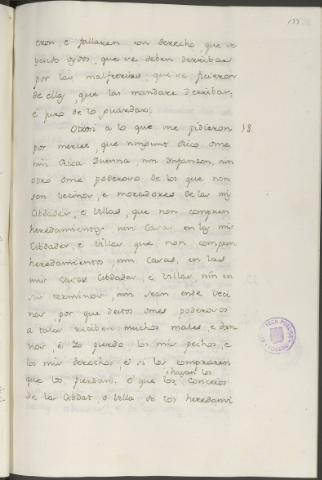 133
eron e fallaren con derecho, que se
yendo oydos, que se deben derribar
por las malfetrias, que se ficieron
de ellas, que las mandare derribar,
e juro de lo guardar.
Otrosi a lo que me pidieron 18.
por merced, que ningunt Rico ome
nin Rica Duenna, nin Infanzon, nin
otro ome poderoso de los que non
son vecinos, e moradores de las mis
Cibdades, e Villas, que non compren
heredamientos nin Casas en las mis
Cibdades, e Villas que non compren
heredamientos, nin Casas, en las
mis Casas Cibdades, e Villas nin en
sus terminos, nin sean ende veci
nos, por que destos omes poderosos
a tales reciben muchos males, e dan
nos, e Yo pierdo los mis pechos, e
los mis derechos, e si las compraren
que los pierdan, e que los hayan los Concejos
de la Cibdat, o Villa do los heredami